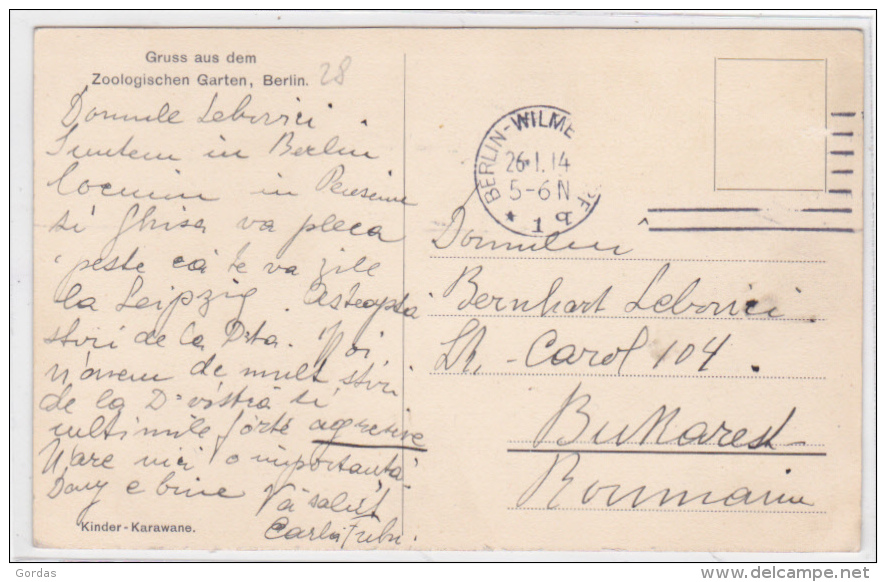 Gruss aus dem
Zoologischen Garten, Berlin.
28
Domnule Lebovici
Suntem in Berlin
locuim in Pensiune
si Ghisa va pleca
peste câ te va zile
la Leipzig. Asteaptă
stiri de la Dta. Noi
n'avem de mult stiri
de la D-vóstră si
ultimile fórte agresive
N'are nici o importanță
Davy e bine Vă salut
Carla
Kinder-Karawane.
BERLIN-WILME RF
26.1.14
5-6 N
* 1 q
Domnului
Bernhart Lebovici.
Str. Carol 104.
Bukarest
Roumanien
Gordas
delcampe.net